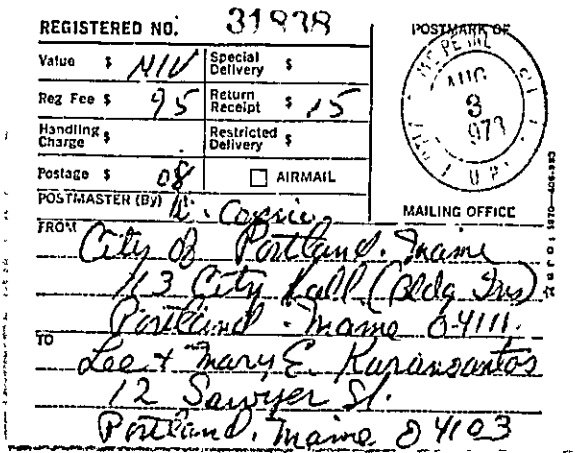 REGISTERED NO. 31938
POSTMARK OF
Value $ NIV
Special Delivery $
Reg Fee $ 95
Return Receipt $ 15
Handling Charge $
Restricted Delivery $
Postage $ 08
AIRMAIL
AUG
3
1973
POSTMASTER (By)
MAILING OFFICE
FROM
City of Portland. Maine
113 City Hall (Bldg Ins)
Portland. Maine 04111.
TO
Lee + Mary E. Karansantos
12 Sawyer St.
Portland, Maine 04103